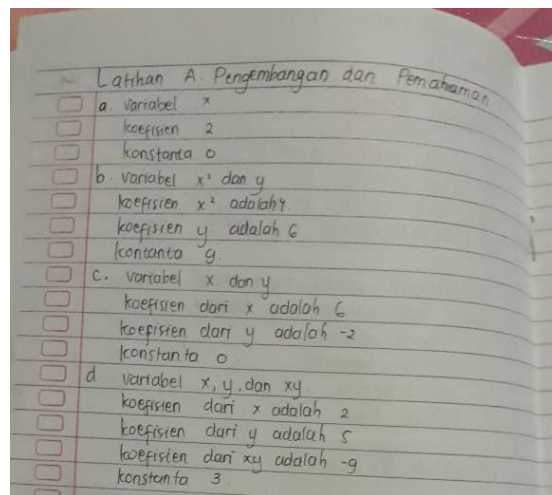 No.
Latihan A. Pengembangan dan Pemahaman
a. variabel x
koefisien 2
konstanta 0
b. variabel x² dan y
koefisien x² adalah 4.
koefisien y adalah 6
kontanta 9.
c. variabel x dan y
koefisien dari x adalah 6
koefisien dari y adalah -2
konstanta 0
d variabel x, y, dan xy.
koefisien dari x adalah 2
koefisien dari y adalah 5
koefisien dari xy adalah -9
konstanta 3